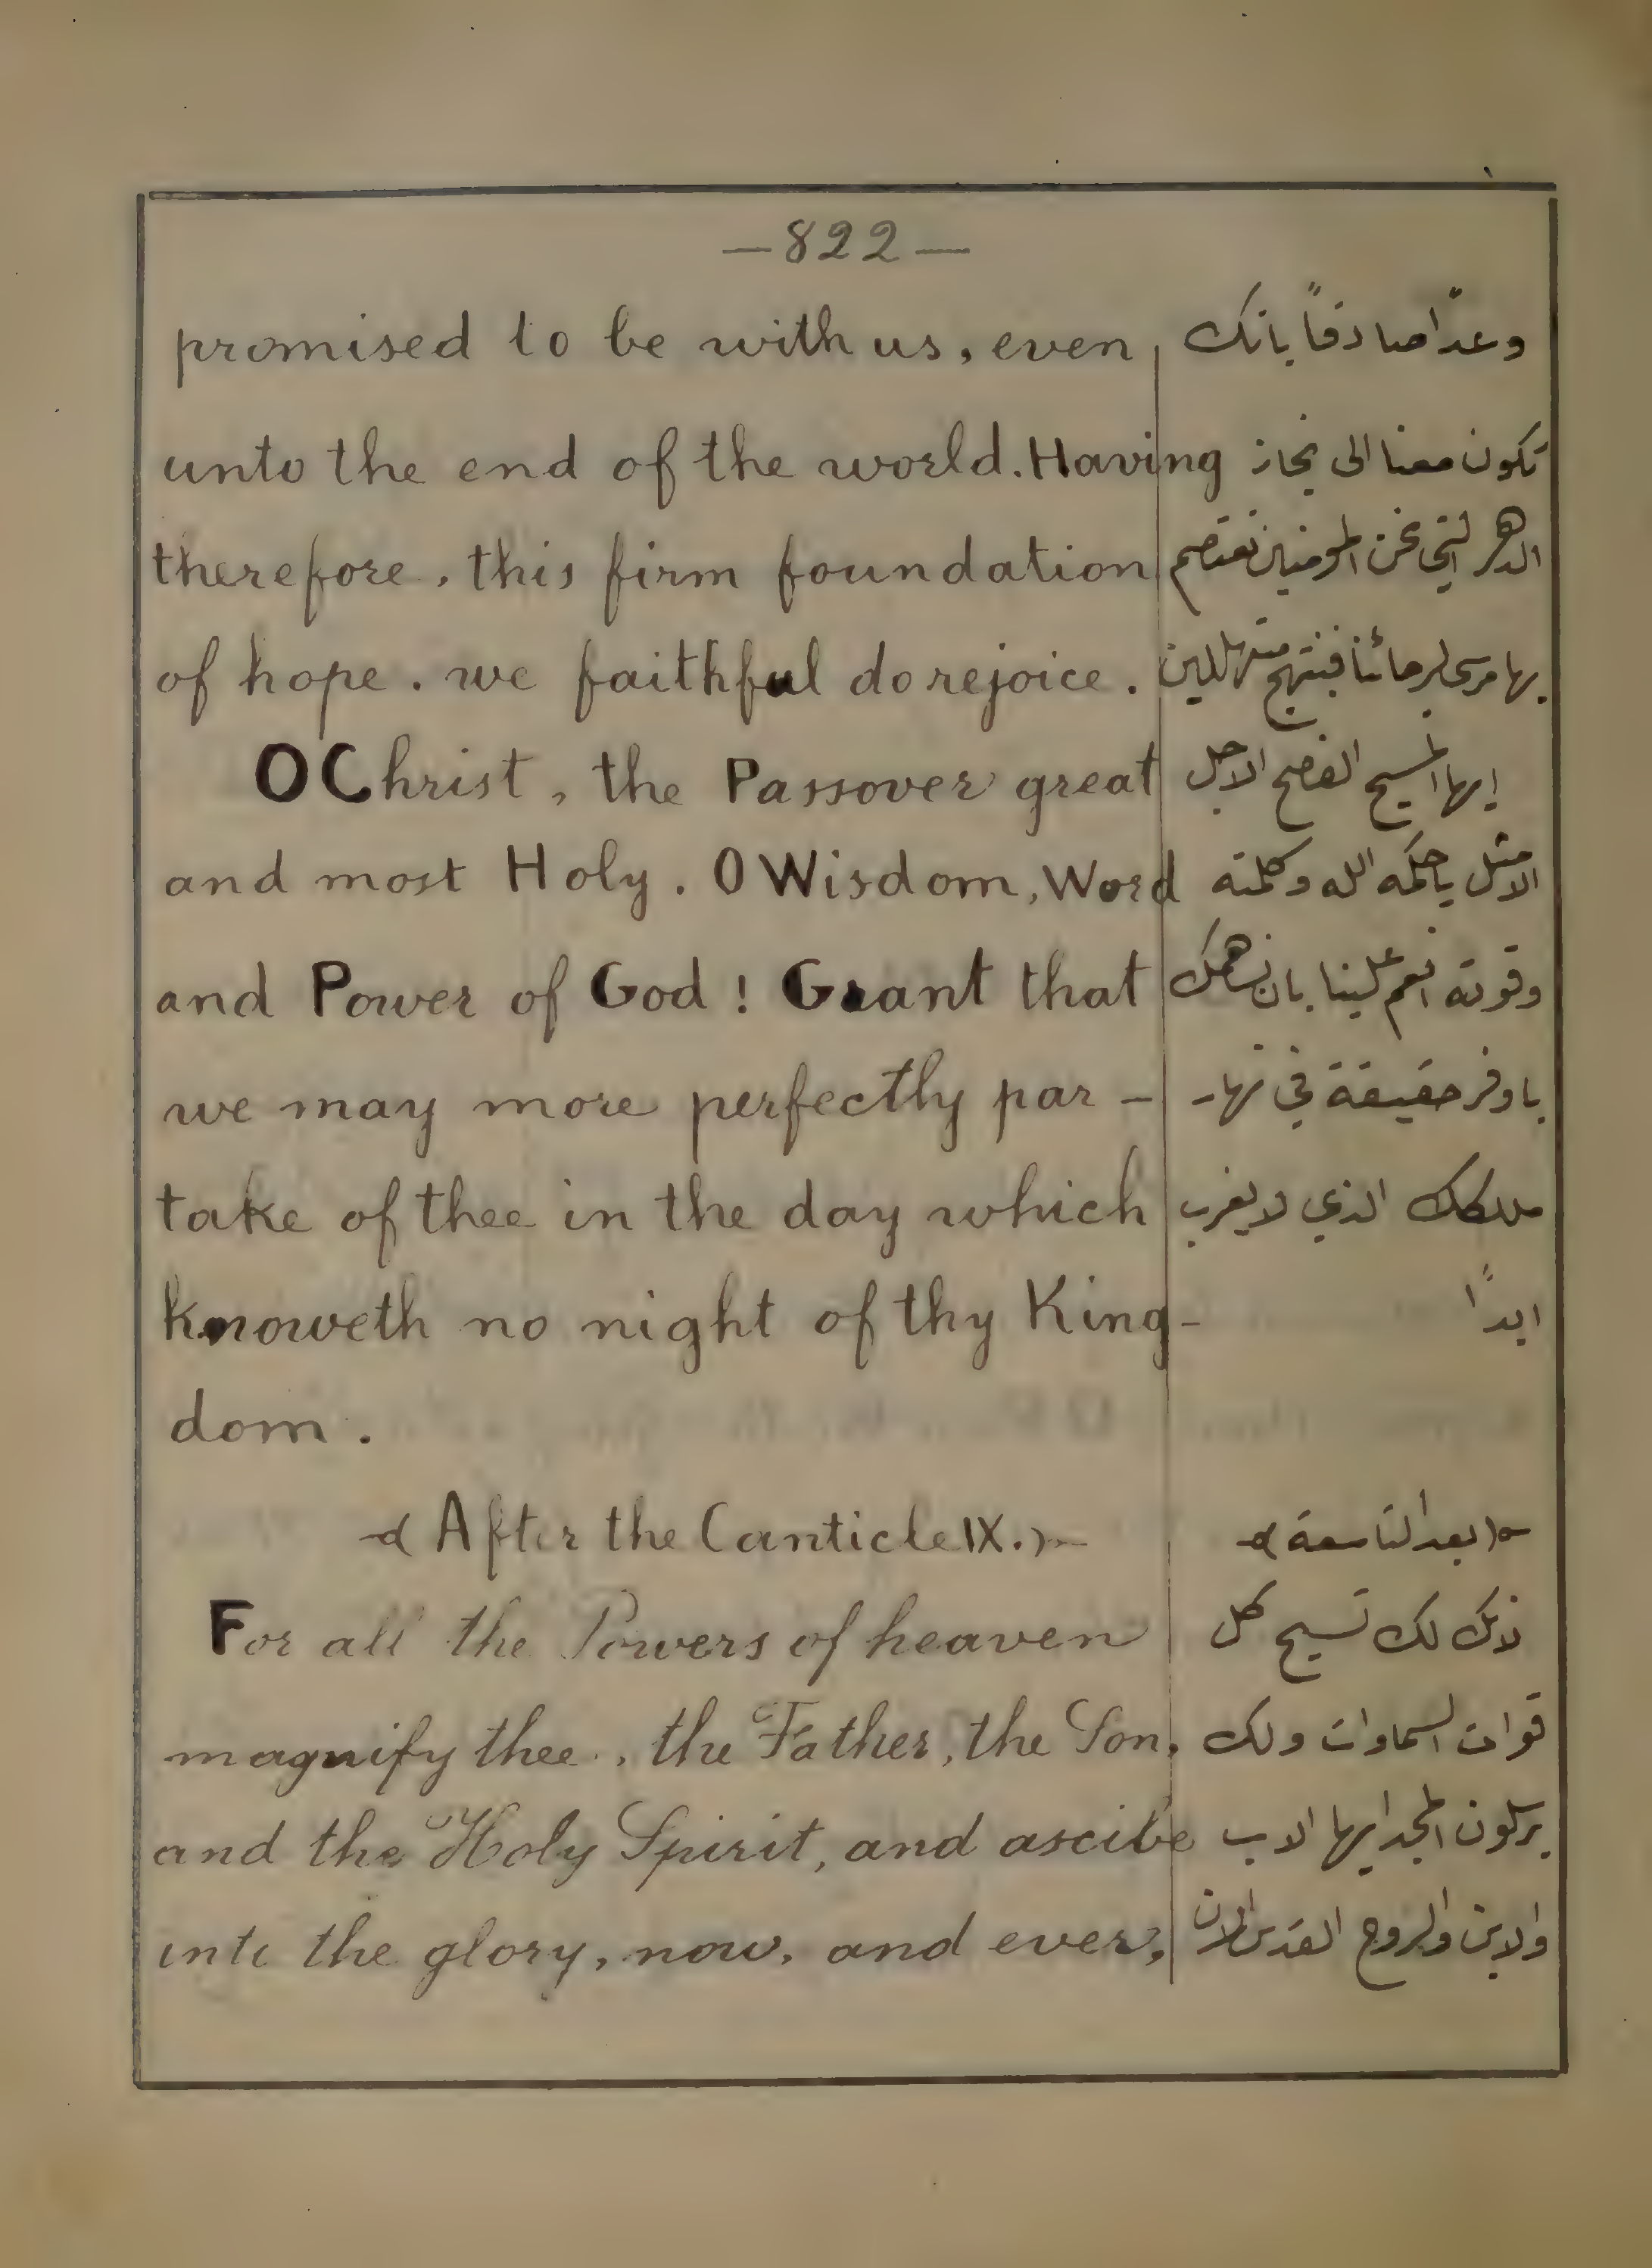 —822—
promised to be with us, even
unto the end of the world. Having
therefore, this firm foundation
of hope. we faithful do rejoice.
O Christ, the Passover great
and most Holy. O Wisdom, Word
and Power of God! Grant that
we may more perfectly par-
take of thee in the day which
knoweth no night of thy King-
dom.
After the Canticle IX.
For all the Powers of heaven
magnify thee, the Father, the Son,
and the Holy Spirit, and ascibe
unto the glory, now, and ever,
وعدًا صادقاً بانك
تكون معنا الى نجاز
الدهر التي نحن المومنين نعتصم
بها مرسى لرجائنا فنبتهج متهللين
ايها المسيح الفصح الاجل
الامثل ياحكمه الله وكلمته
وقوته انعم علينا بان نساهمك
باوفر حقيقة في نهار
ملكك الذي لا يغرب
ابدًا
بعد التاسعة
لانك لك تسبح كل
قوات السماوات ولك
يرسلون المجد ايها الاب
والابن والروح القدس الان